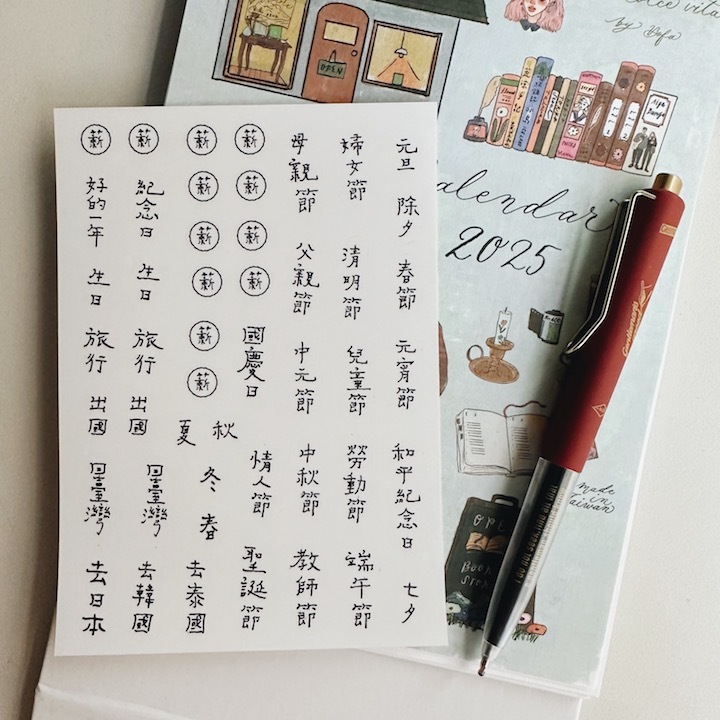 元旦
除夕
春節
元宵節
和平紀念日
七夕
婦女節
清明節
兒童節
勞動節
端午節
母親節
父親節
中元節
中秋節
教師節
薪
薪
薪
薪
國慶日
秋
情人節
聖誕節
薪
薪
薪
薪
薪
薪
夏
冬
春
去泰國
薪
紀念日
生日
旅行
出國
臺灣
去韓國
薪
好的一年
生日
旅行
出國
臺灣
去日本
vita
by Befa
OPEN
Calendar
2025
made
in
Taiwan
OPE
Book
Store